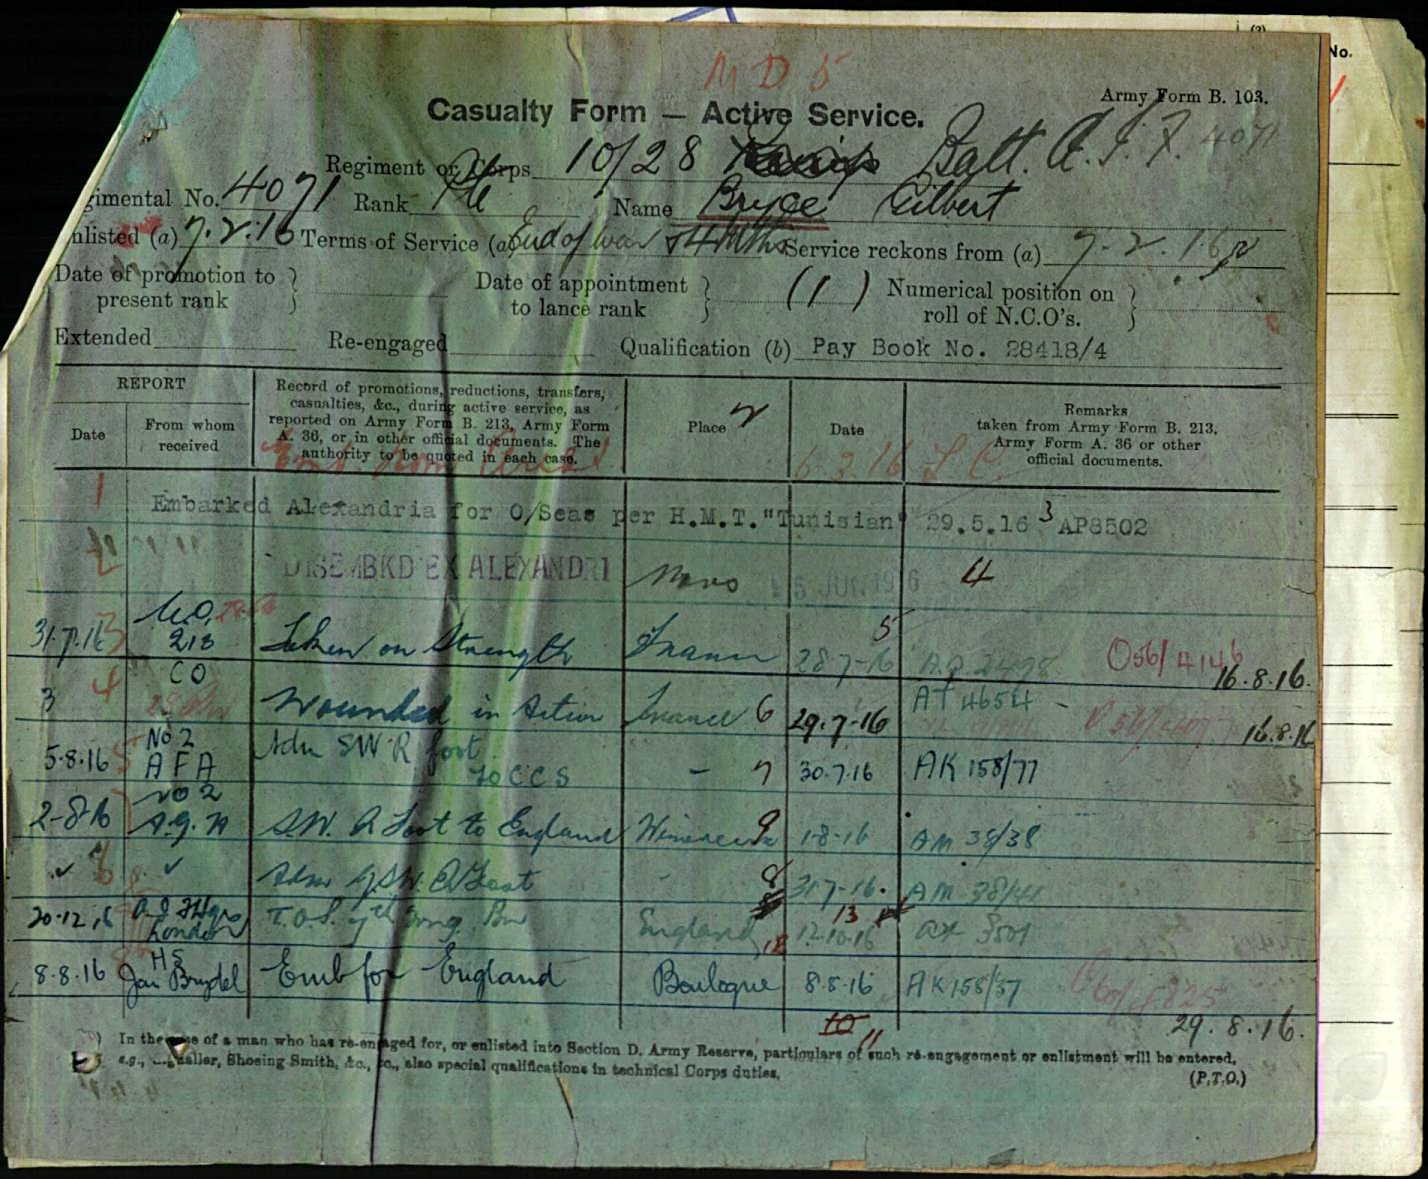 (2)
No.
M D 5
Army Form B. 103.
Casualty Form — Active Service.
Regiment or Corps 10/28 Batt. A.I.F. 4071
gimental No. 4071 Rank Pte Name Bryce Gilbert
nlisted (a) 7.2.16 Terms of Service (a) End of war & 4 Mths Service reckons from (a) 7.2.16
Date of promotion to present rank } Date of appointment to lance rank } (1) Numerical position on roll of N.C.O's. }
Extended Re-engaged Qualification (b) Pay Book No. 28418/4
REPORT
Date
From whom received
Record of promotions, reductions, transfers, casualties, &c., during active service, as reported on Army Form B. 213, Army Form A. 36, or in other official documents. The authority to be quoted in each case.
Place
Date
Remarks taken from Army Form B. 213, Army Form A. 36 or other official documents.
6 3 16
1 Embarked Alexandria for O/Seas per H.M.T. "Tunisian" 29.5.16 3 AP8502
2 DISEMBKD EX ALEXANDRI 4
31.7.16 3 C.O. 213 Taken on Strength France 28-7-16 5 O56/4146 16.8.16.
3 4 CO Wounded in Action France 6 29.7-16 AT 4654 16.8.16
5.8.16 5 No 2 AFA Adm SW R foot to CCS - 7 30.7.16 AK 158/77
2-8-16 No 2 S.W. R Foot to England 9 1-8-16 AM 38/38
✓ 6 ✓ Adm GSW. R Foot - 8 31-7-16. AM 38/41
20.12.16 A.I.F Hqrs London T.O.S. England 13 12-10-16
8.8.16 HS Jan Brydel Emb for England Boulogne 8.8.16 AK 158/37
10 11 29.8.16.
) In the case of a man who has re-engaged for, or enlisted into Section D. Army Reserve, particulars of such re-engagement or enlistment will be entered,
e.g., Shoeing Smith, &c., &c., also special qualifications in technical Corps duties.
(P.T.O.)